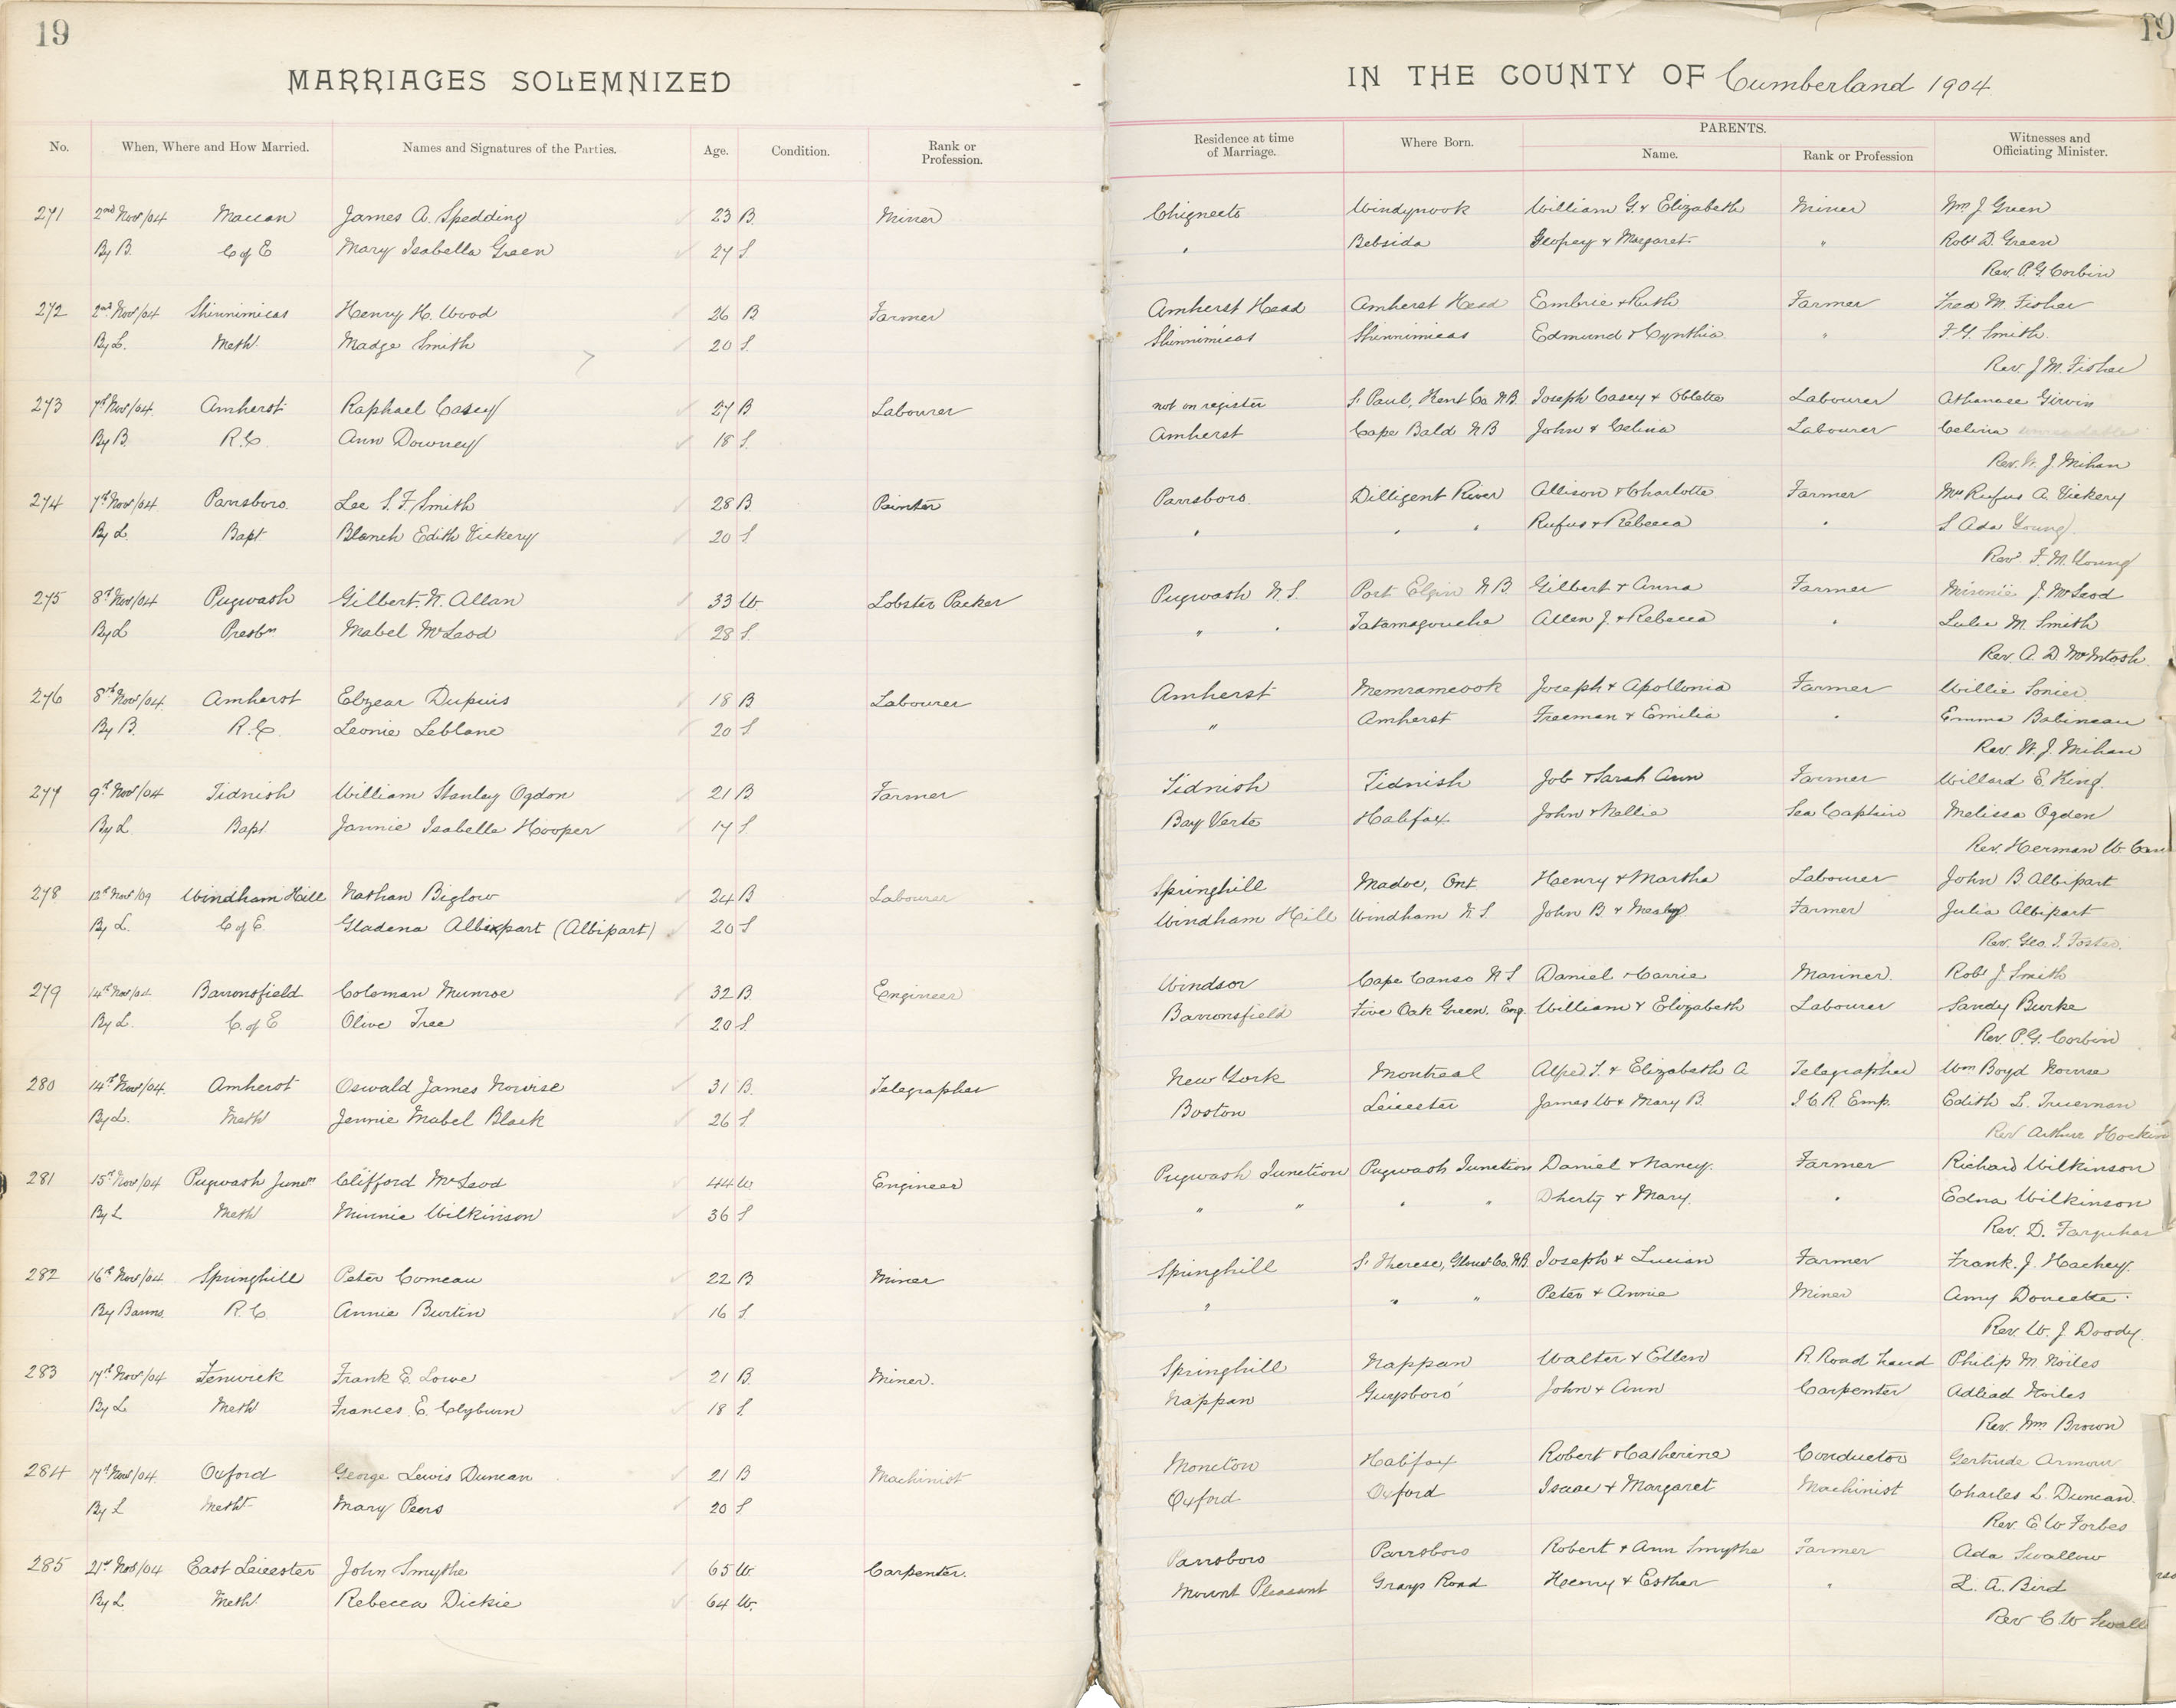 19
MARRIAGES SOLEMNIZED
No. When, Where and How Married. Names and Signatures of the Parties. Age. Condition. Rank or Profession.
271 2nd Nov/04 Maccan James A. Spedding 23 B. Miner
By B. C of E Mary Isabella Green 27 S.
272 2nd Nov/04 Shinnimicas Henry H. Wood 26 B Farmer
By L. Meth. Madge Smith 20 S.
273 7th Nov/04 Amherst Raphael Casey 27 B Labourer
By B. R.C. Ann Downey 18 S.
274 7th Nov/04 Parrsboro. Lee S. F. Smith 28 B. Painter
By L. Bapt Blanch Edith Vickery 20 S
275 8th Nov/04 Pugwash Gilbert. N. Allan 33 W. Lobster Packer
By L Presbn Mabel McLeod 28 S.
276 8th Nov/04 Amherst Elzear Dupuis 18 B Labourer
By B. R.C. Leonie Leblanc 20 S
277 9th Nov/04 Tidnish William Stanley Ogdon 21 B Farmer
By L. Bapt. Jannie Isabelle Hooper 17 S.
278 12th Nov/09 Windham Hill Nathan Biglow 24 B Labourer
By L. C of E. Gladena Albixpart (Albipart) 20 S
279 14th Nov/04 Barronsfield Coleman Munroe 32 B. Engineer
By L. C. of E Olive Tree 20 S.
280 14th Nov/04. Amherst Oswald James Nourse 31 B. Telegrapher
By L. Meth Jennie Mabel Black 26 S.
281 15th Nov/04 Pugwash Juncn Clifford McLeod 44 W. Engineer
By L Meth Minnie Wilkinson 36 S
282 16th Nov/04 Springhill Peter Comeau 22 B Miner
By Banns. R.C. Annie Burtin 16 S.
283 17th Nov/04 Fenwick Frank E. Lowe 21 B. Miner.
By L Meth Frances. E. Clyburn 18 S.
284 17th Nov/04. Oxford George Lewis Duncan 21 B Machinist
By L Metht Mary Peers 20 S.
285 21st Nov/04 East Leicester John Smythe 65 W. Carpenter.
By L. Meth. Rebecca Dickie 64 W.
19
IN THE COUNTY OF Cumberland 1904
Residence at time of Marriage. Where Born. PARENTS. Name. Rank or Profession Witnesses and Officiating Minister.
Chignecto Windynook William G. & Elizabeth Miner Wm. J. Green
" Bebsida Geofrey & Margaret " Robt D. Green
Rev. P. G. Corbin
Amherst Head Amherst Head Embrie & Ruth Farmer Fred M. Fisher
Shinnimicas Shinnimicas Edmund & Cynthia " F. G. Smith.
Rev. J. M. Fisher
not on register St Paul, Kent Co. N.B. Joseph Casey & Oblette Labourer Athanase Girvin
Amherst Cape Bald N B John & Celina Labourer Celina unreadable
Rev. W. J. Mihan
Parrsboro. Dilligent River Allison & Charlotte Farmer Mrs Rufus A. Vickery
" " " Rufus & Rebecca " S Ada Young
Rev. F. M. Young
Pugwash N. S. Port Elgin N B. Gilbert & Anna Farmer Minnie J. McLeod
" " Tatamagouche Allen J. & Rebecca " Lulu M. Smith
Rev. A. D. McIntosh.
Amherst Memramcook Joseph & Apollonia Farmer Willie Sonier
" Amherst Freeman & Emilia " Emma Babineau
Rev. W. J. Mihan
Tidnish Tidnish Job & Sarah Ann Farmer Willard E. King.
Bay Verte Halifax John & Nellie Sea Captain Melissa Ogden
Rev. Herman W.
Springhill Madoc, Ont. Henry & Martha Labourer John B Albipart
Windham Hill Windham N. S. John B. & Farmer Julia Albipart
Rev. Geo. I. Foster.
Windsor Cape Canso N S Daniel & Carrie Mariner. Robt J. Smith
Barronsfield Five Oak Green. Eng. William & Elizabeth Labourer Sandy Burke
Rev. P. G. Corbin
New York Montreal Alfred T. & Elizabeth A Telegrapher Wm Boyd Nourse
Boston Leicester James W. & Mary B. I C R Emp. Edith L. Trueman
Rev Arthur Hockin
Pugwash Junction Pugwash Junction Daniel & Nancy. Farmer Richard Wilkinson
" " " " Dherty & Mary. " Edna Wilkinson
Rev. D. Farquhar
Springhill St Therese, Glouc Co. N.B. Joseph & Lucian Farmer Frank. J. Hachey.
" " " Peter & Annie Miner Amy Doucette.
Rev. W. J. Doody.
Springhill Nappan Walter & Ellen R. Road hand Philip M. Noiles
Nappan Guysboro' John & Ann Carpenter Adliad Noiles
Rev. Wm Brown
Moncton Halifax Robert & Catherine Conductor Gertrude Armour
Oxford Oxford Isaac & Margaret Machinist Charles L. Duncan.
Rev. E. W Forbes
Parrsboro Parrsboro Robert & Ann Smythe Farmer Ada Swallow
Mount Pleasant Grays Road Henry & Esther " L. A. Bird
Rev C. W Swall